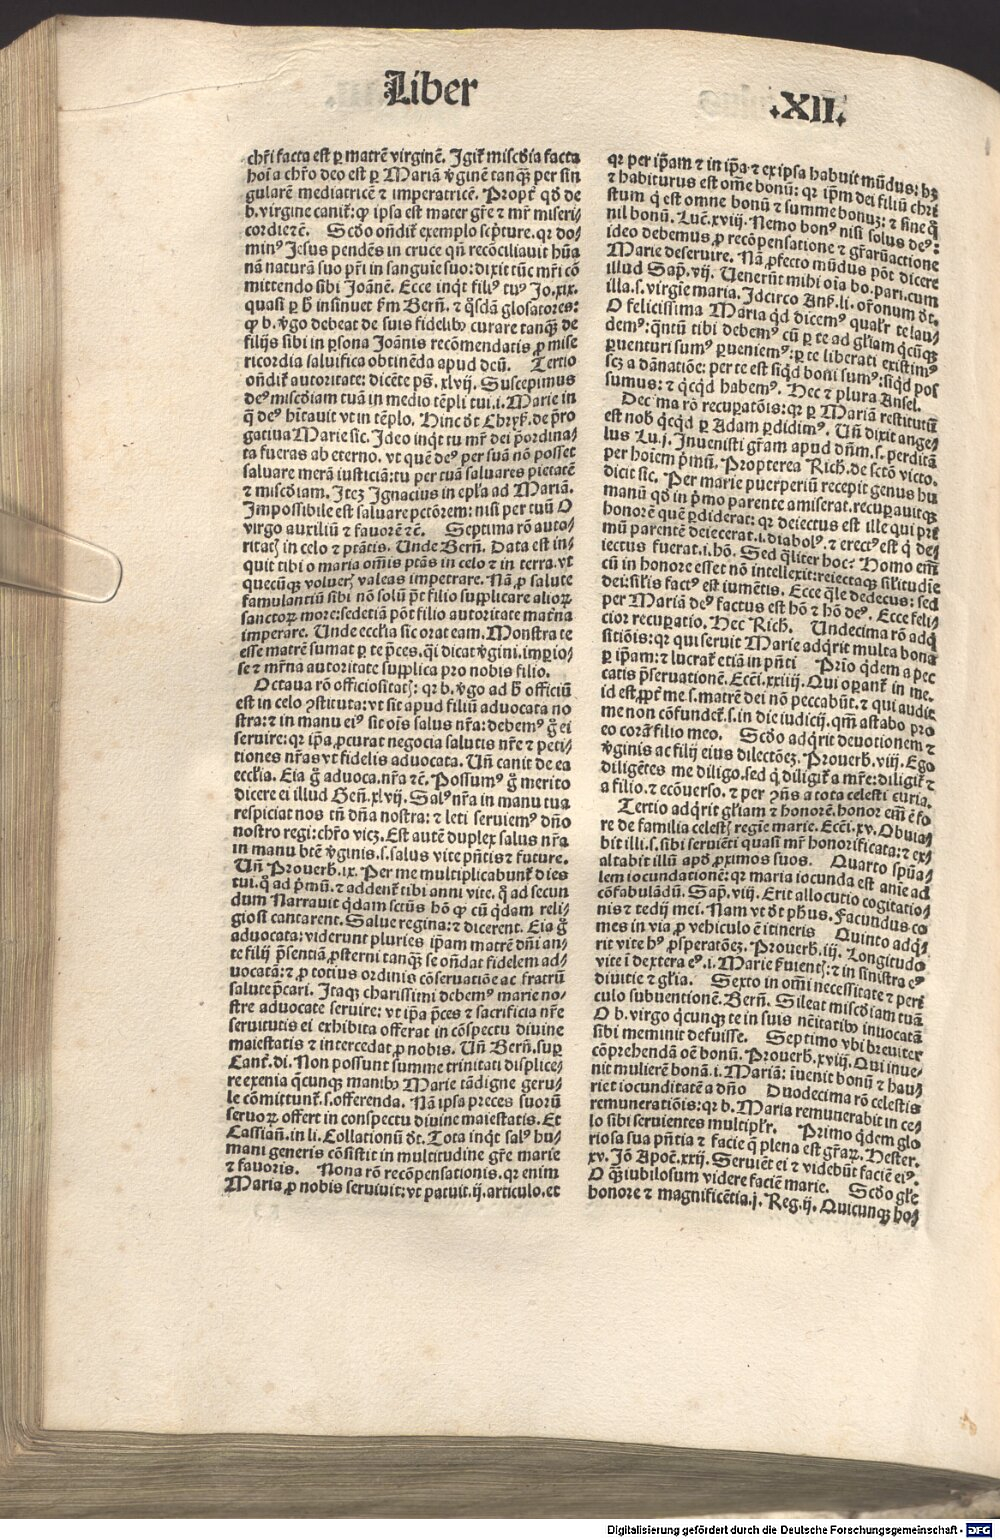 Liber
.XII.
chr̃i facta est ꝑ matrẽ virginẽ. Igit᷑ misc̃dia facta
hoĩa chr̃o deo est ꝑ Mariã v̾ginẽ tanqȝ per sin
gularẽ mediatricẽ ⁊ imperatricẽ. Propt̾ qđ de
b. virgine canit᷑: ꝙ ipsa est mater gr̃e ⁊ mr̃ miseri
cordie ⁊c̃. Scďo oñdit᷑ exemplo scp̃ture. qꝛ do⸗
minꝰ Jesus pendẽs in cruce qñ recõciliauit hũa
nã naturã suo pr̃i in sanguĩe suo: dixit tũc mr̃i cõ
mittendo sibi Joãnẽ. Ecce inqt filiꝰ tuꝰ Jo. xix.
quasi ꝑ h̾ insinuet ẜm Bern̄. ⁊ qͦsdã glosatores:
ꝙ b. v̾go debeat de suis fidelibꝰ curare tanqȝ de
filijs sibi in ꝑsona Joãnis recõmendatis ꝓ mise
ricordia saluifica obtinẽda apud deũ. Tertio
oñdit᷑ autoritate: dicẽte ps̃. xlvij. Suscepimus
deꝰ misc̃diam tuã in medio tẽpli tui. i. Marie in
q̃ deꝰ hĩtauit vt in tẽplo. Hinc d̾t Chryẜ. de p̃ro
gatiua Marie sic. Ideo inqt tu mr̃ dei p̃ordina⸗
ta fueras ab eterno. vt quẽ deꝰ per suã nõ posset
saluare merã iusticiã: tu per tuã saluares pietatẽ
⁊ misc̃diam. Iteȝ Ignacius in epl̃a ad Mariã.
Impossibile est saluare pctõrem: nisi per tuũ O
virgo auxiliũ ⁊ fauorẽ ⁊c̃. Septima rõ auto⸗
ritatꝭ in celo ⁊ ptãtis. Unde Bern̄. Data est in⸗
quit tibi o maria om̃is ptãs in celo ⁊ in terra. vt
quecũqȝ volueꝭ valeas impetrare. Nã ꝓ salute
famulantiũ sibi nõ solũ pt̃ filio supplicare alioꝝ
sanctoꝝ more: sed etiã põt filio autoritate mat̾na
imperare. Unde ecclĩa sic orat eam. Monstra te
esse matrẽ sumat ꝑ te p̃ces. qͥ dicat v̾gini. imꝑio⸗
se ⁊ mr̃na autoritate supplica pro nobis filio.
Octaua rõ officiositatꝭ: qꝛ b. v̾go ad h̾ officiũ
est in celo ↄstituta: vt sit apud filiũ aduocata no
stra: ⁊ in manu eiꝰ sit oĩs salus nr̃a: debemꝰ g̃ ei
seruire: qꝛ ip̃a ꝓcurat negocia salutis nr̃e ⁊ peti⸗
tiones nr̃as vt fidelis aduocata. Uñ canit de ea
ecclĩa. Eia g̃ aduoca. nr̃a ⁊c̃. Possumꝰ g̃ merito
dicere ei illud Gen̄. xlvij. Salꝰ nr̃a in manu tua
respiciat nos tm̃ dña nostra: ⁊ leti seruiemꝰ dño
nostro regi: chr̃o vicȝ. Est autẽ duplex salus nr̃a
in manu btẽ v̾ginis. s. salus vite p̃ntis ⁊ future.
Uñ Prouerb. ix. Per me multiplicabunt᷑ dies
tui. qͦ ad p̃mũ. ⁊ addent᷑ tibi anni vite. qͦ ad secun
dum Narrauit qͥdam sctũs hõ ꝙ cũ qͥdam reli⸗
giosi cantarent. Salue regina: ⁊ dicerent. Eia g̃
aduocata: viderunt pluries ip̃am matrẽ dñi an⸗
te filij p̃sentiã ꝓsterni tanqȝ se oñdat fidelem ad⸗
uocatã: ⁊ ꝓ totius ordinis cõseruatiõe ac fratrũ
salute p̃cari. Itaqȝ charissimi debemꝰ marie no⸗
stre aduocate seruire: vt ip̃a p̃ces ⁊ sacrificia nr̃e
seruitutis ei exhibita offerat in cõspectu diuine
maiestatis ⁊ intercedat ꝓ nobis. Uñ Bern̄. suꝑ
Cant̾. di. Non possunt summe trinitati displice⸗
re exenia qͥcunqȝ manibꝰ Marie tãdigne geru⸗
le cõmittunt᷑. s. offerenda. Nã ipsa preces suorũ
seruoꝝ offert in conspectu diuine maiestatis. Et
Cassian̄. in li. Collationũ d̾t. Tota inqt salꝰ hu⸗
mani generis cõsistit in multitudine gr̃e marie
⁊ fauoris. Nona rõ recõpensationis. qꝛ enim
Maria ꝓ nobis seruiuit: vt patuit. ij. articulo. et
qꝛ per ip̃am ⁊ in ip̃a ⁊ ex ipsa habuit mũdus: hȝ
⁊ habiturus est om̃e bonũ: qꝛ ip̃m dei filiũ chri
stum qͥ est omne bonũ ⁊ summe bonuȝ: ⁊ sine qͦ
nil bonũ. Luc̃. xviij. Nemo bonꝰ nisi solus deꝰ:
ideo debemus ꝓ recõpensatione ⁊ gr̃aruactione
Marie deseruire. Nã ꝓfecto mũdus põt dicere
illud Sap̃. vij. Uenerũt mihi oĩa bo. pari. cum
illa. s. virgĩe maria. Idcirco Anẜ. li. or̃onum d̾t.
O felicissima Maria qͥd dicemꝰ qualr̃ te lau⸗
demꝰ: qñtũ tibi debemꝰ cũ ꝑ te ad gl̃iam qͥcũqȝ
ꝑuenturi sumꝰ ꝑueniemꝰ: ꝑ te liberati existimꝰ
scȝ a dãnatiõe: per te est siqͥd boni sumꝰ: siqͥd pos
sumus: ⁊ qͥcqͥd habemꝰ. Hec ⁊ plura Ansel.
Decima rõ recuꝑatõis: qꝛ ꝑ Mariã restitutũ
est nob̾ qͥcqͥd ꝑ Adam ꝑdidimꝰ. Uñ dixit ange⸗
lus Lu. j. Inuenisti gr̃am apud dñm. s. perditã
per hoĩem p̃mũ. Propterea Rich̾. de sctõ victo.
dicit sic. Per marie puerperiũ recepit genus hu
manũ qđ in p̃mo parente amiserat. recuꝑauitqȝ
honorẽ quẽ ꝑdiderat: qꝛ deiectus est ille qui pri
mũ parentẽ deiecerat. i. diabolꝰ. ⁊ erectꝰ est qͥ de⸗
iectus fuerat. i. hõ. Sed qͣliter hoc? Homo em̃
cũ in honore esset nõ intellexit: reiectaqȝ sil̃itudĩe
dei: sil̃is factꝰ est iumẽtis. Ecce qͣle dedecus: sed
per Mariã deꝰ factus est hõ ⁊ hõ deꝰ. Ecce feli⸗
cior recuꝑatio. Hec Rich̾. Undecima rõ adqͥ
sitiõis: qꝛ qui seruit Marie adqͥrit multa bona
ꝑ ip̃am: ⁊ lucrat᷑ etiã in p̃nti Prio qͥdem a pec
catis p̃seruationẽ. Ecci̾. xxiiij. Qui oꝑant᷑ in me.
id est ꝓpt̾ me s. matrẽ dei nõ peccabũt. ⁊ qui audie
me non cõfundet᷑. s. in die iudicij. qm̃ astabo pro
eo corã filio meo. Scďo adqͥrit deuotionem ⁊
v̾ginis ac filij eius dilectõeȝ. Prouerb. viij. Ego
diligẽtes me diligo. sed qͥ diligit᷑ a mr̃e: diligit᷑ ⁊
a filio. ⁊ ecõuerso. ⁊ per ↄñs a tota celesti curia.
Tertio adqͥrit gl̃iam ⁊ honorẽ. honor em̃ ẽ fo
re de familia celestꝭ regĩe marie. Ecci̾. xv. Obuia⸗
bit illi. s. sibi seruiẽti quasi mr̃ honorificata: ⁊ ex⸗
altabit illũ apď ꝓximos suos. Quarto sp̃ua⸗
lem iocundationẽ: qꝛ maria iocunda est anĩe ad
cõfabulãdũ. Sap̃. viij. Erit allocutio cogitatio⸗
nis ⁊ tedij mei. Nam vt d̾t ph̃us. Facundus co
mes in via ꝓ vehiculo ẽ itineris Quinto adqͥ⸗
rit vite hꝰ ꝓsperatõeȝ. Prouerb. iij. Longitudo
vite ĩ dextera eꝰ. i. Marie ẜuientꝭ: ⁊ in sinistra eꝰ
diuitie ⁊ gl̃ia. Sexto in om̃i necessitate ⁊ peri
culo subuentionẽ. Bern̄. Sileat misc̃diam tuã
O b. virgo qͥcunqȝ te in suis nẽitatibꝰ inuocatã
sibi meminit defuisse. Septimo vbi breuiter
cõprehendã oẽ bonũ. Prouerb. xviij. Qui inue⸗
nit mulierẽ bonã. i. Mariã: ĩuenit bonũ ⁊ hau⸗
riet iocunditatẽ a dño Duodecima rõ celestis
remuneratiõis: qꝛ b. Maria remunerabit in ce⸗
lo sibi seruientes multipl̃r. Primo qͥdem glo
riosa sua p̃ntia ⁊ facie q̃ plena est gr̃aꝝ. Hester.
xv. Jõ Apoc̃. xxij. Seruiẽt ei ⁊ videbũt faciẽ eiꝰ.
O qȝ iubilosum videre faciẽ marie. Scďo gl̃e
honore ⁊ magnificẽtia. j. Reg. ij. Quicunqȝ ho⸗
Digitalisierung gefördert durch die Deutsche Forschungsgemeinschaft - DFG